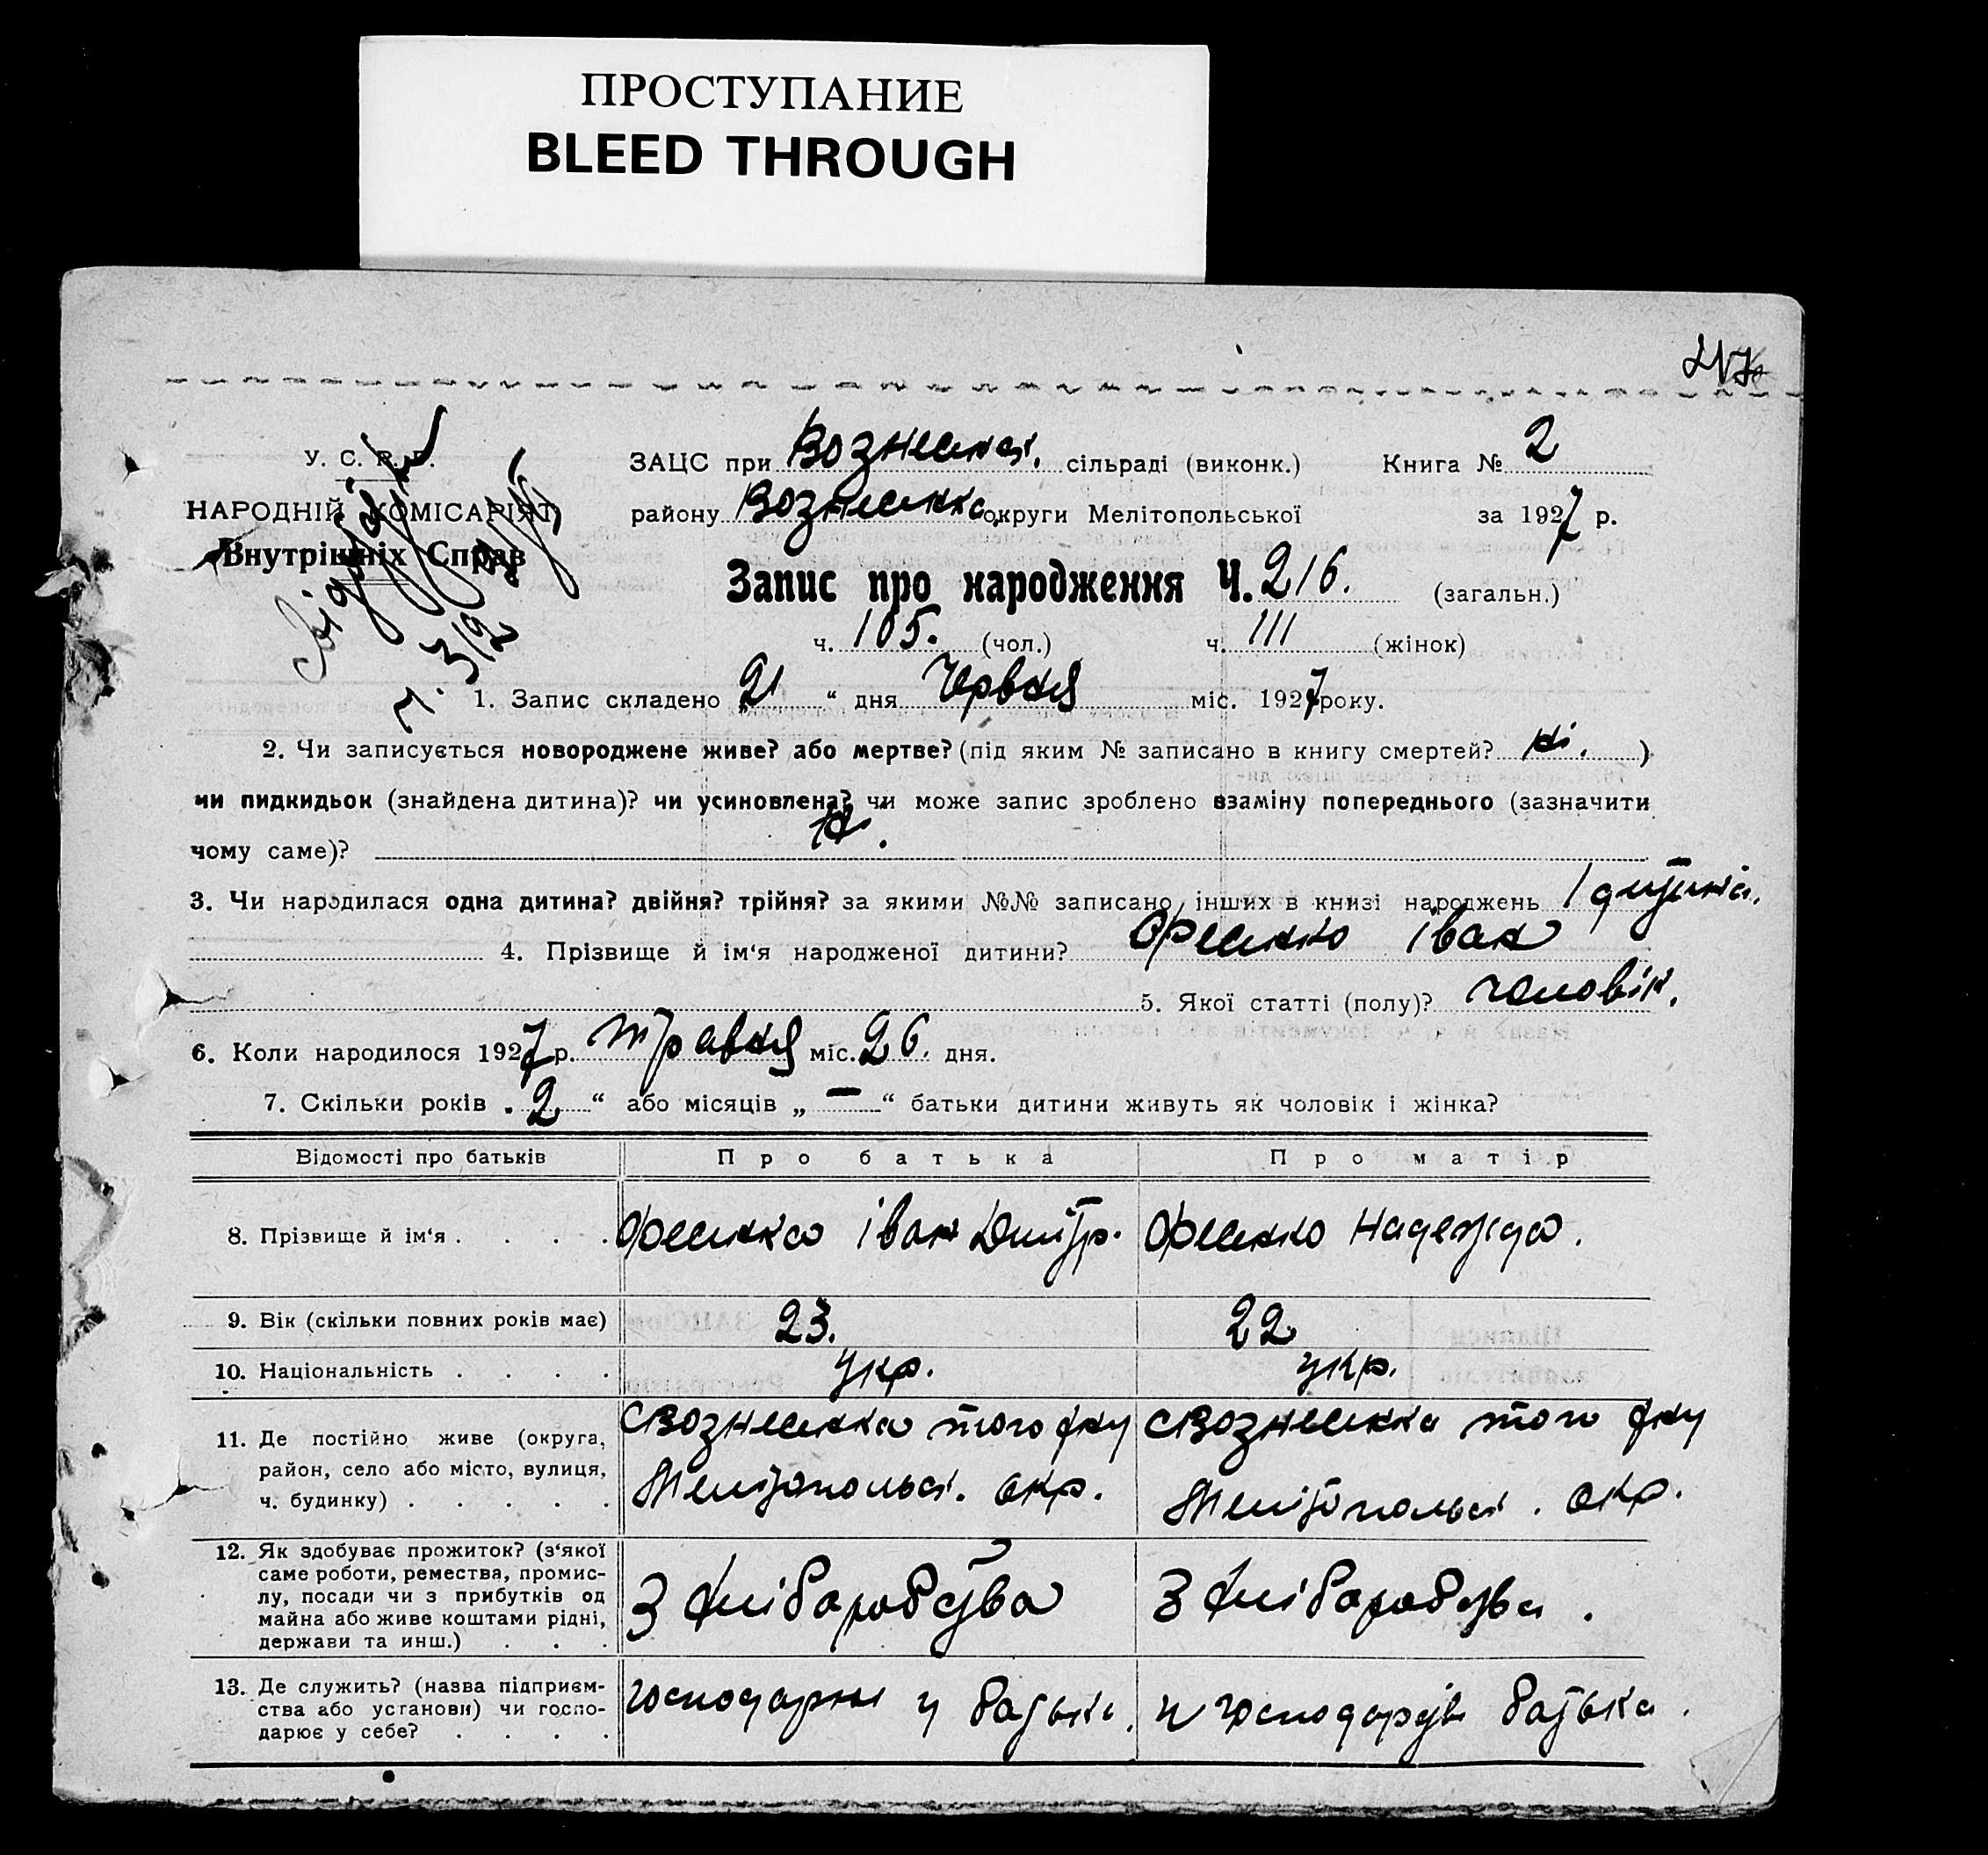 ПРОСТУПАНИЕ
BLEED THROUGH
У. С. Р. Р.
НАРОДНІЙ КОМІСАРІЯТ
Внутрішніх Справ
ЗАЦС при Вознесенськ. сільраді (виконк.) Книга № 2
району Вознесенка округи Мелітопольської за 1927 р.
Запис про народження Ч. 216. (загальн.)
ч. 105. (чол.) ч. 111 (жінок)
1. Запис складено „21“ дня Червня міс. 1927 року.
2. Чи записується новороджене живе? або мертве? (під яким № записано в книгу смертей? ні. )
чи пидкидьок (знайдена дитина)? чи усиновлена? чи може запис зроблено взаміну попереднього (зазначити
чому саме)? ні.
3. Чи народилася одна дитина? двійня? трійня? за якими №№ записано інших в книзі народжень 1 дитина.
4. Прізвище й ім‘я народженої дитини? Фесенко Іван
5. Якої статті (полу)? чоловік.
6. Коли народилося 1927 р. травня міс. 26. дня.
7. Скільки років „2“ або місяців „—“ батьки дитини живуть як чоловік і жінка?
Відомості про батьків Про батька Про матір
8. Прізвище й ім‘я . . . . Фесенко Іван Дмитр. Фесенко Надежда.
9. Вік (скільки повних років має) 23. 22
10. Національність . . . . укр. укр.
11. Де постійно живе (округа, район, село або місто, вулиця, ч. будинку) . . . . . с Вознесенка того р-ну Мелітопольськ. окр. с Вознесенка того р-ну Мелітопольськ. окр.
12. Як здобуває прожиток? (з‘якої саме роботи, ремества, промислу, посади чи з прибутків од майна або живе коштами рідні, держави та инш.) . . . З хліборобства З хліборобства.
13. Де служить? (назва підприємства або установи) чи господарює у себе? . . . . у батька. батька.